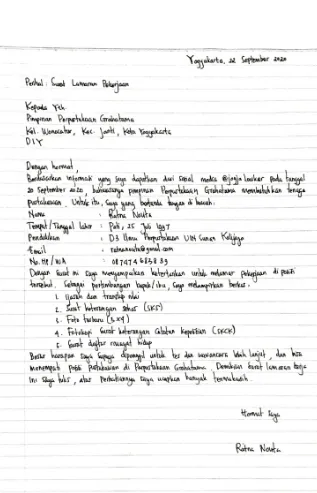 Yogyakarta, 22 September 2020
Perihal : Surat Lamaran Pekerjaan
Kepada Yth.
Pimpinan Perpustakaan Grahatama
Kel. Wonocatur, Kec. Janti, Kota Yogyakarta
DIY
Dengan hormat,
Berdasarkan informasi yang saya dapatkan dari sosial media @jogja.loker pada tanggal
20 September 2020, bahwasanya pimpinan Perpustakaan Grahatama membutuhkan tenaga
pustakawan. Untuk itu, Saya yang bertanda tangan di bawah.
Nama : Ratna Novita
Tempat/Tanggal lahir : Pati, 25 Juli 1997
Pendidikan : D3 Ilmu Perpustakaan UIN Sunan Kalijaga
Email :
No. HP / WA :
Dengan surat ini saya menyampaikan ketertarikan untuk melamar pekerjaan di posisi
tersebut. Sebagai pertimbangan bapak/ibu saya melampirkan berkas :
1. Ijasah dan transkip nilai
2. Surat keterangan sehat (SKS)
3. Foto terbaru (3x4)
4. Fotokopi Surat keterangan Catatan Kepolisian (SKCK)
5. Surat daftar riwayat hidup
Besar harapan saya supaya dipanggil untuk tes dan wawancara lebih lanjut, dan bisa
menempati posisi Pustakawan di Perpustakaan Grahatama. Demikian Surat lamaran kerja
ini saya tulis, atas perhatiannya saya ucapkan banyak terimakasih.
Hormat Saya
Ratna Novita